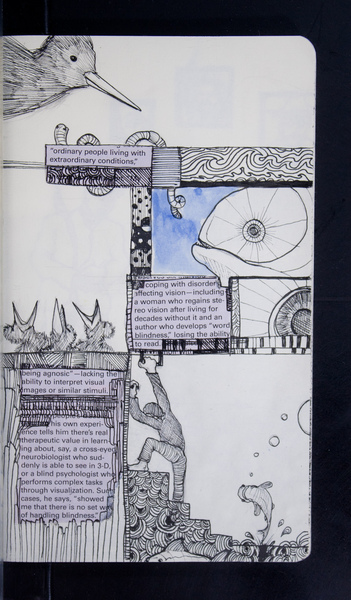 "ordinary people living with
extraordinary conditions,"
coping with disorders
affecting vision—including
a woman who regains ste-
reo vision after living for
decades without it and an
author who develops "word
blindness," losing the ability
to read.
being agnosic"—lacking the
ability to interpret visual
images or similar stimuli.
his own experi-
ence tells him there's real
therapeutic value in learn-
ing about, say, a cross-eyed
neurobiologist who sud-
denly is able to see in 3-D,
or a blind psychologist who
performs complex tasks
through visualization. Such
cases, he says, "showed
me that there is no set way
of handling blindness."